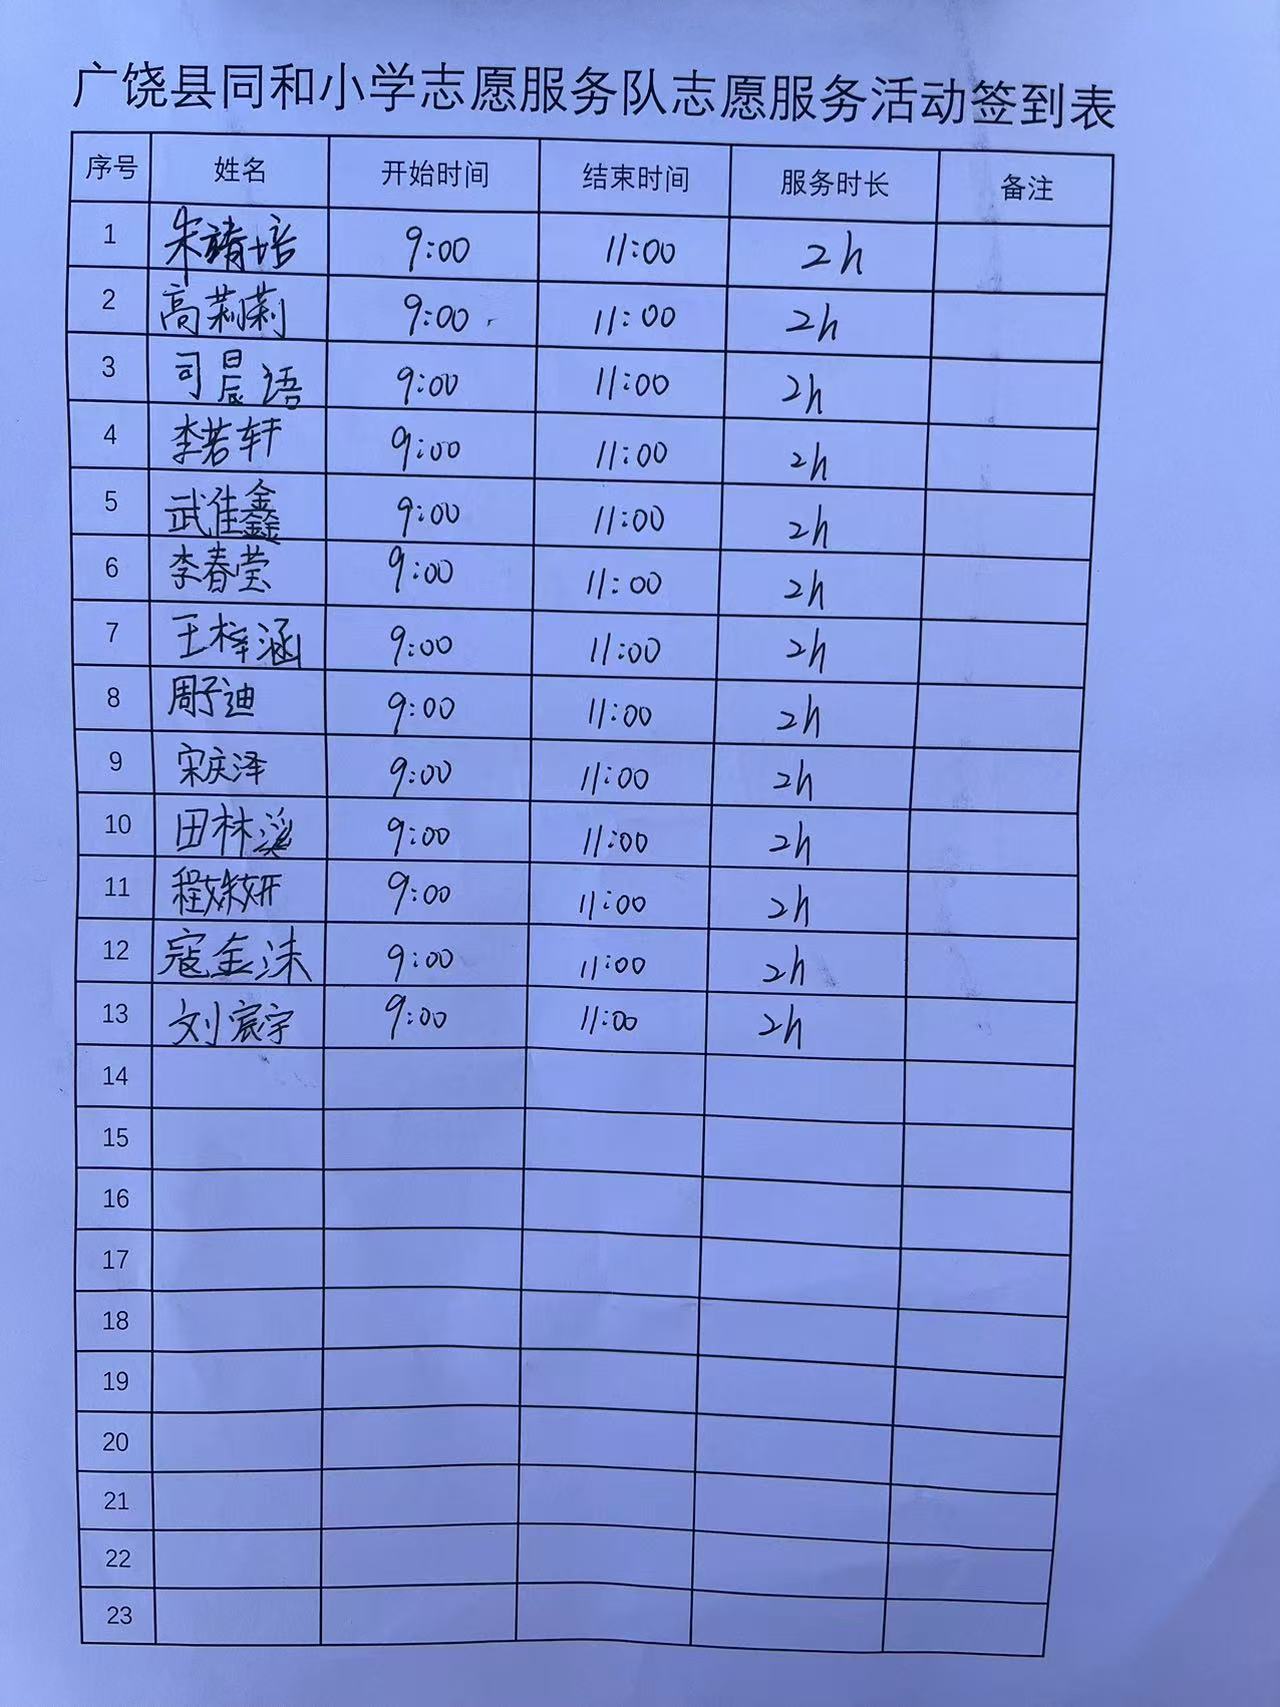 广饶县同和小学志愿服务队志愿服务活动签到表
序号 姓名 开始时间 结束时间 服务时长 备注
1 朱靖培 9:00 11:00 2h
2 高莉莉 9:00 11:00 2h
3 司晨语 9:00 11:00 2h
4 李若轩 9:00 11:00 2h
5 武佳鑫 9:00 11:00 2h
6 李春莹 9:00 11:00 2h
7 王梓涵 9:00 11:00 2h
8 周子迪 9:00 11:00 2h
9 宋庆泽 9:00 11:00 2h
10 田林溪 9:00 11:00 2h
11 程姝妍 9:00 11:00 2h
12 寇金沫 9:00 11:00 2h
13 刘宸宇 9:00 11:00 2h
14
15
16
17
18
19
20
21
22
23